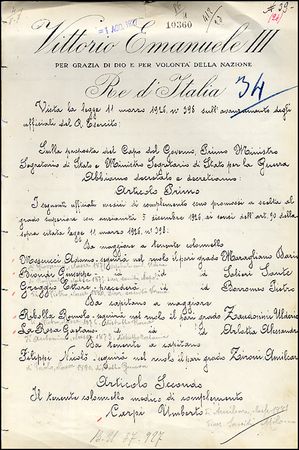 1 AGO. 1927
10360
Vittorio Emanuele III
PER GRAZIA DI DIO E PER VOLONTÀ DELLA NAZIONE
Re d'Italia
34
Vista la legge 11 marzo 1926, n° 398 sull'avanzamento degli
ufficiali del R. Esercito;
Sulla proposta del Capo del Governo, Primo Ministro
Segretario di Stato e Ministro Segretario di Stato per la Guerra
Abbiamo decretato e decretiamo:
Articolo Primo
I seguenti ufficiali medici di complemento sono promossi a scelta al
grado superiore con anzianità 5 dicembre 1926, ai sensi dell'art. 90 della
sopra citata legge 11 marzo 1926, n° 398:
Da maggiore a tenente colonnello
Adamo, seguirà nel ruolo il pari grado Maragliano Dario
Biondi Giuseppe id id Salieri Sante
Greggio Ettore, precederà id id Borromeo Pietro
Da capitano a maggiore
Rebolla Romolo, seguirà nel ruolo il pari grado Ulderico
La Rosa Gaetano, id id Arlotta Alessandro
Da tenente a capitano
Filippi Nicolò, seguirà nel ruolo il pari grado Zironi Amilcare
Articolo Secondo
Il tenente colonnello medico di complemento
Carpi Umberto